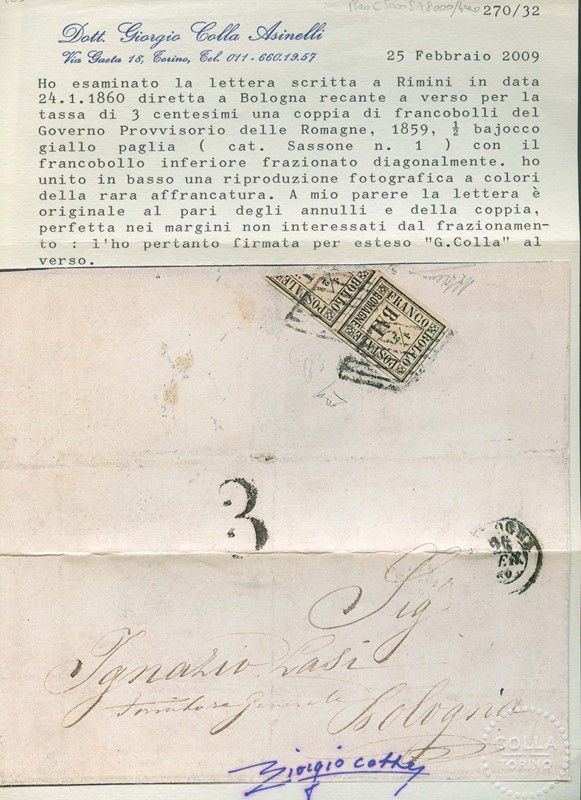 270/32
Dott. Giorgio Colla Asinelli
Via Gaeta 18, Torino, Tel. 011-660.19.57
25 Febbraio 2009
Ho esaminato la lettera scritta a Rimini in data
24.1.1860 diretta a Bologna recante a verso per la
tassa di 3 centesimi una coppia di francobolli del
Governo Provvisorio delle Romagne, 1859, ½ bajocco
giallo paglia ( cat. Sassone n. 1 ) con il
francobollo inferiore frazionato diagonalmente. ho
unito in basso una riproduzione fotografica a colori
della rara affrancatura. A mio parere la lettera è
originale al pari degli annulli e della coppia,
perfetta nei margini non interessati dal frazionamen-
to : l'ho pertanto firmata per esteso "G.Colla" al
verso.
POSTALE
BOLLO
FRANCO
BOLLO
POSTALE
ROMAGNE
BAI
3
Sig
Ignazio
Bologna
Giorgio Colla
COLLA
TORINO